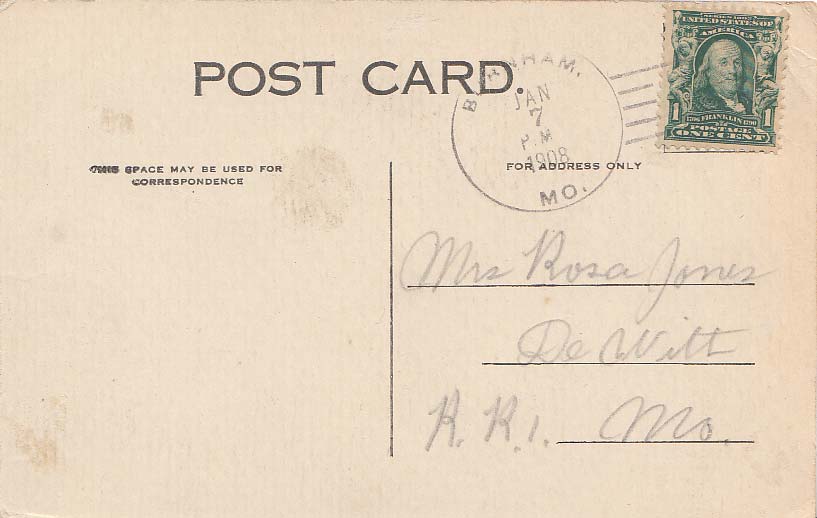 POST CARD.
THIS SPACE MAY BE USED FOR
CORRESPONDENCE
FOR ADDRESS ONLY
BURNHAM,
JAN
7
P.M
1908
MO.
SERIES 1902
UNITED STATES OF
AMERICA
1 1
1706 FRANKLIN 1790
POSTAGE
ONE CENT
Mrs Rosa Jones
De Witt
R. R. 1. Mo.